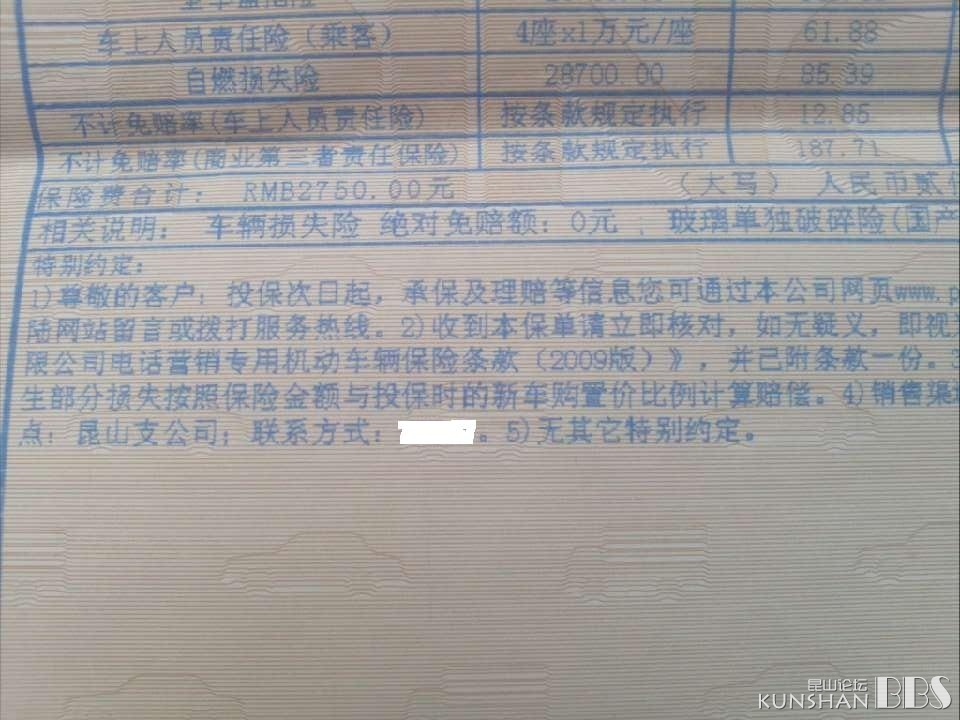 车上人员责任险(乘客) 4座x1万元/座 61.88
自燃损失险 28700.00 85.39
不计免赔率(车上人员责任险) 按条款规定执行 12.85
不计免赔率(商业第三者责任保险) 按条款规定执行 187.71
保险费合计: RMB2750.00元 (大写) 人民币贰仟
相关说明: 车辆损失险 绝对免赔额:0元; 玻璃单独破碎险(国产
特别约定:
1)尊敬的客户: 投保次日起, 承保及理赔等信息您可通过本公司网页www.p
陆网站留言或拨打服务热线。2)收到本保单请立即核对, 如无疑义, 即视为
限公司电话营销专用机动车辆保险条款(2009版)》, 并已附条款一份。3
生部分损失按照保险金额与投保时的新车购置价比例计算赔偿。4)销售渠道
点: 昆山支公司; 联系方式: 。5)无其它特别约定。
昆山论坛
KUNSHAN BBS